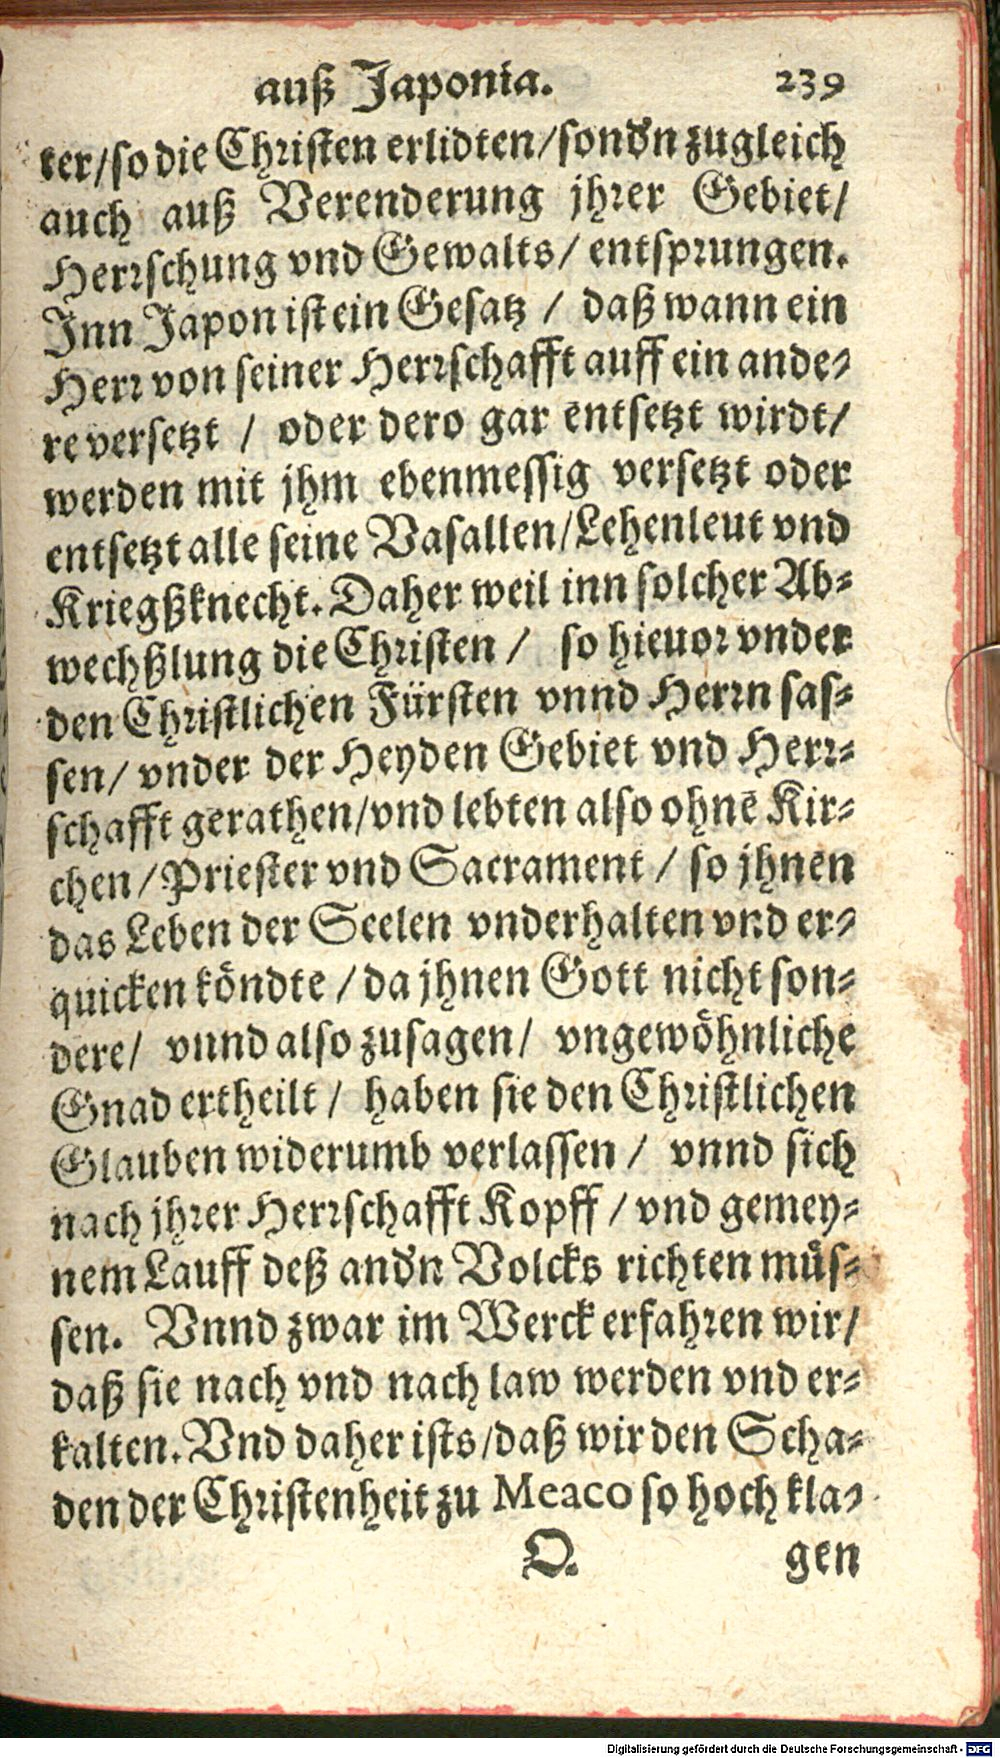 auß Japonia. 239
ter/so die Christen erlidten/sond'n zugleich
auch auß Verenderung jhrer Gebiet/
Herrschung vnd Gewalts/ entsprungen.
Inn Japon ist ein Gesatz / daß wann ein
Herr von seiner Herrschafft auff ein ande-
re versetzt / oder dero gar entsetzt wirdt/
werden mit jhm ebenmessig versetzt oder
entsetzt alle seine Vasallen/Lehenleut vnd
Kriegßknecht. Daher weil inn solcher Ab-
wechßlung die Christen / so hieuor vnder
den Christlichen Fürsten vnnd Herrn sas-
sen/ vnder der Heyden Gebiet vnd Herr-
schafft gerathen/vnd lebten also ohnē Kir-
chen/Priester vnd Sacrament / so jhnen
das Leben der Seelen vnderhalten vnd er-
quicken köndte / da jhnen Gott nicht son-
dere/ vnnd also zusagen/ vngewöhnliche
Gnad ertheilt / haben sie den Christlichen
Glauben widerumb verlassen / vnnd sich
nach jhrer Herrschafft Kopff / vnd gemey-
nem Lauff deß and'n Volcks richten müs-
sen. Vnnd zwar im Werck erfahren wir/
daß sie nach vnd nach law werden vnd er-
kalten. Vnd daher ists/daß wir den Scha-
den der Christenheit zu Meaco so hoch kla-
Q. gen
Digitalisierung gefördert durch die Deutsche Forschungsgemeinschaft - DFG